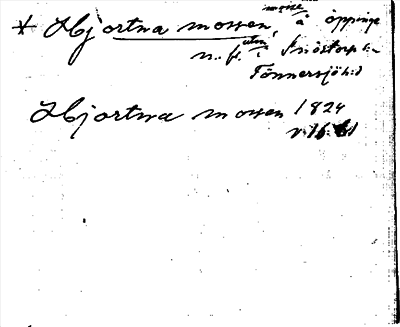 * Hjortna mossen, mosse å öppinge
n. f. utm i Snöstorp s:n
Tönnersjö h:d
Hjortna mossen 1824
v. 16